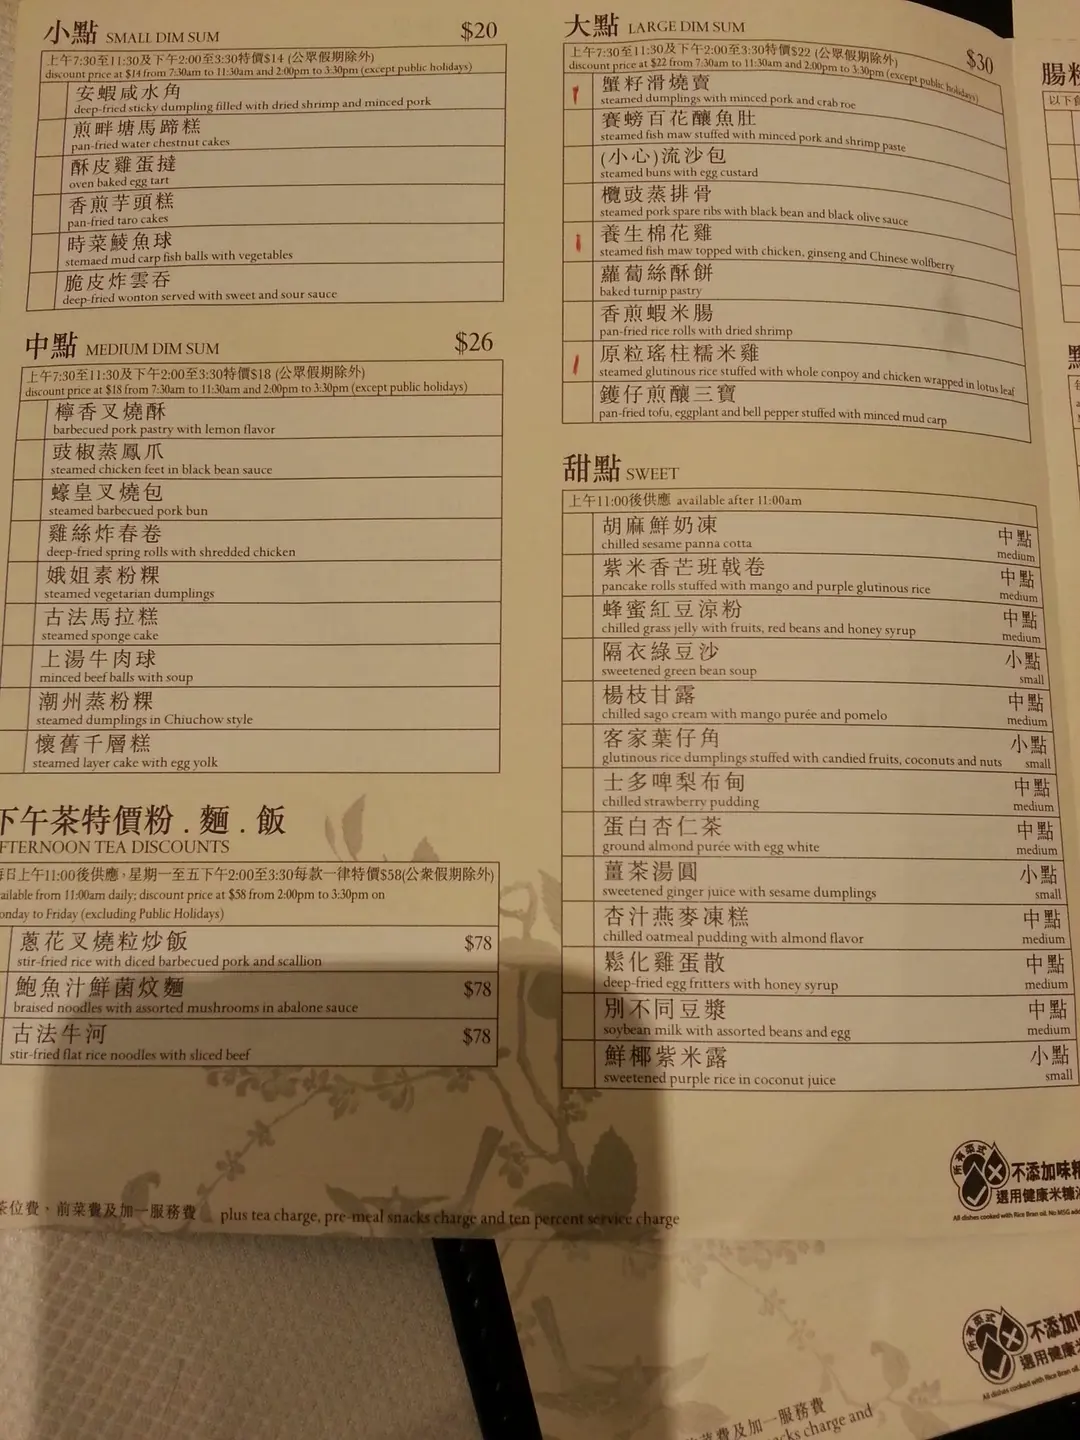 小點 SMALL DIM SUM $20
上午7:30至11:30及下午2:00至3:30特價$14 (公眾假期除外)
discount price at $14 from 7:30am to 11:30am and 2:00pm to 3:30pm (except public holidays)
安蝦咸水角
deep-fried sticky dumpling filled with dried shrimp and minced pork
煎畔塘馬蹄糕
pan-fried water chestnut cakes
酥皮雞蛋撻
oven baked egg tart
香煎芋頭糕
pan-fried taro cakes
時菜鯪魚球
stemaed mud carp fish balls with vegetables
脆皮炸雲吞
deep-fried wonton served with sweet and sour sauce
中點 MEDIUM DIM SUM $26
上午7:30至11:30及下午2:00至3:30特價$18 (公眾假期除外)
discount price at $18 from 7:30am to 11:30am and 2:00pm to 3:30pm (except public holidays)
檸香叉燒酥
barbecued pork pastry with lemon flavor
豉椒蒸鳳爪
steamed chicken feet in black bean sauce
蠔皇叉燒包
steamed barbecued pork bun
雞絲炸春卷
deep-fried spring rolls with shredded chicken
娥姐素粉粿
steamed vegetarian dumplings
古法馬拉糕
steamed sponge cake
上湯牛肉球
minced beef balls with soup
潮州蒸粉粿
steamed dumplings in Chiuchow style
懷舊千層糕
steamed layer cake with egg yolk
下午茶特價粉 . 麵 . 飯
FTERNOON TEA DISCOUNTS
每日上午11:00後供應，星期一至五下午2:00至3:30每款一律特價$58(公眾假期除外)
ailable from 11:00am daily; discount price at $58 from 2:00pm to 3:30pm on
onday to Friday (excluding Public Holidays)
蔥花叉燒粒炒飯 $78
stir-fried rice with diced barbecued pork and scallion
鮑魚汁鮮菌炆麵 $78
braised noodles with assorted mushrooms in abalone sauce
古法牛河 $78
stir-fried flat rice noodles with sliced beef
茶位費、前菜費及加一服務費 plus tea charge, pre-meal snacks charge and ten percent service charge
大點 LARGE DIM SUM $30
上午7:30至11:30及下午2:00至3:30特價$22 (公眾假期除外)
discount price at $22 from 7:30am to 11:30am and 2:00pm to 3:30pm (except public holidays)
蟹籽滑燒賣
steamed dumplings with minced pork and crab roe
賽螃百花釀魚肚
steamed fish maw stuffed with minced pork and shrimp paste
(小心)流沙包
steamed buns with egg custard
欖豉蒸排骨
steamed pork spare ribs with black bean and black olive sauce
養生棉花雞
steamed fish maw topped with chicken, ginseng and Chinese wolfberry
蘿蔔絲酥餅
baked turnip pastry
香煎蝦米腸
pan-fried rice rolls with dried shrimp
原粒瑤柱糯米雞
steamed glutinous rice stuffed with whole conpoy and chicken wrapped in lotus leaf
鑊仔煎釀三寶
pan-fried tofu, eggplant and bell pepper stuffed with minced mud carp
甜點 SWEET
上午11:00後供應 available after 11:00am
胡麻鮮奶凍 中點
chilled sesame panna cotta medium
紫米香芒班戟卷 中點
pancake rolls stuffed with mango and purple glutinous rice medium
蜂蜜紅豆涼粉 中點
chilled grass jelly with fruits, red beans and honey syrup medium
隔衣綠豆沙 小點
sweetened green bean soup small
楊枝甘露 中點
chilled sago cream with mango purée and pomelo medium
客家葉仔角 小點
glutinous rice dumplings stuffed with candied fruits, coconuts and nuts small
士多啤梨布甸 中點
chilled strawberry pudding medium
蛋白杏仁茶 中點
ground almond purée with egg white medium
薑茶湯圓 小點
sweetened ginger juice with sesame dumplings small
杏汁燕麥凍糕 中點
chilled oatmeal pudding with almond flavor medium
鬆化雞蛋散 中點
deep-fried egg fritters with honey syrup medium
別不同豆漿 中點
soybean milk with assorted beans and egg medium
鮮椰紫米露 小點
sweetened purple rice in coconut juice small
所有菜式
不添加味精
選用健康米糠油
All dishes cooked with Rice Bran oil. No MSG
腸粉
以下
所有菜式
不添加
選用健康米
All dishes cooked with Rice Bran oil.
費及加一服務費
cks charge and